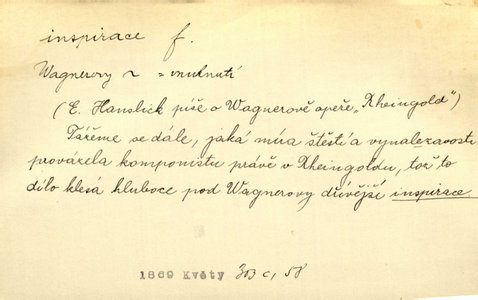 inspirace f.
Wagnerovy ~ = vnuknutí
(E. Hanslick píše o Wagnerově opeře „Rheingold“)
Tážeme se dále, jaká míra štěstí a vynalezavosti
provázela komponistu právě v Rheingoldu, tož to
dílo klesá hluboce pod Wagnerovy dřívější inspirace.
1869 Květy 303 c, 58